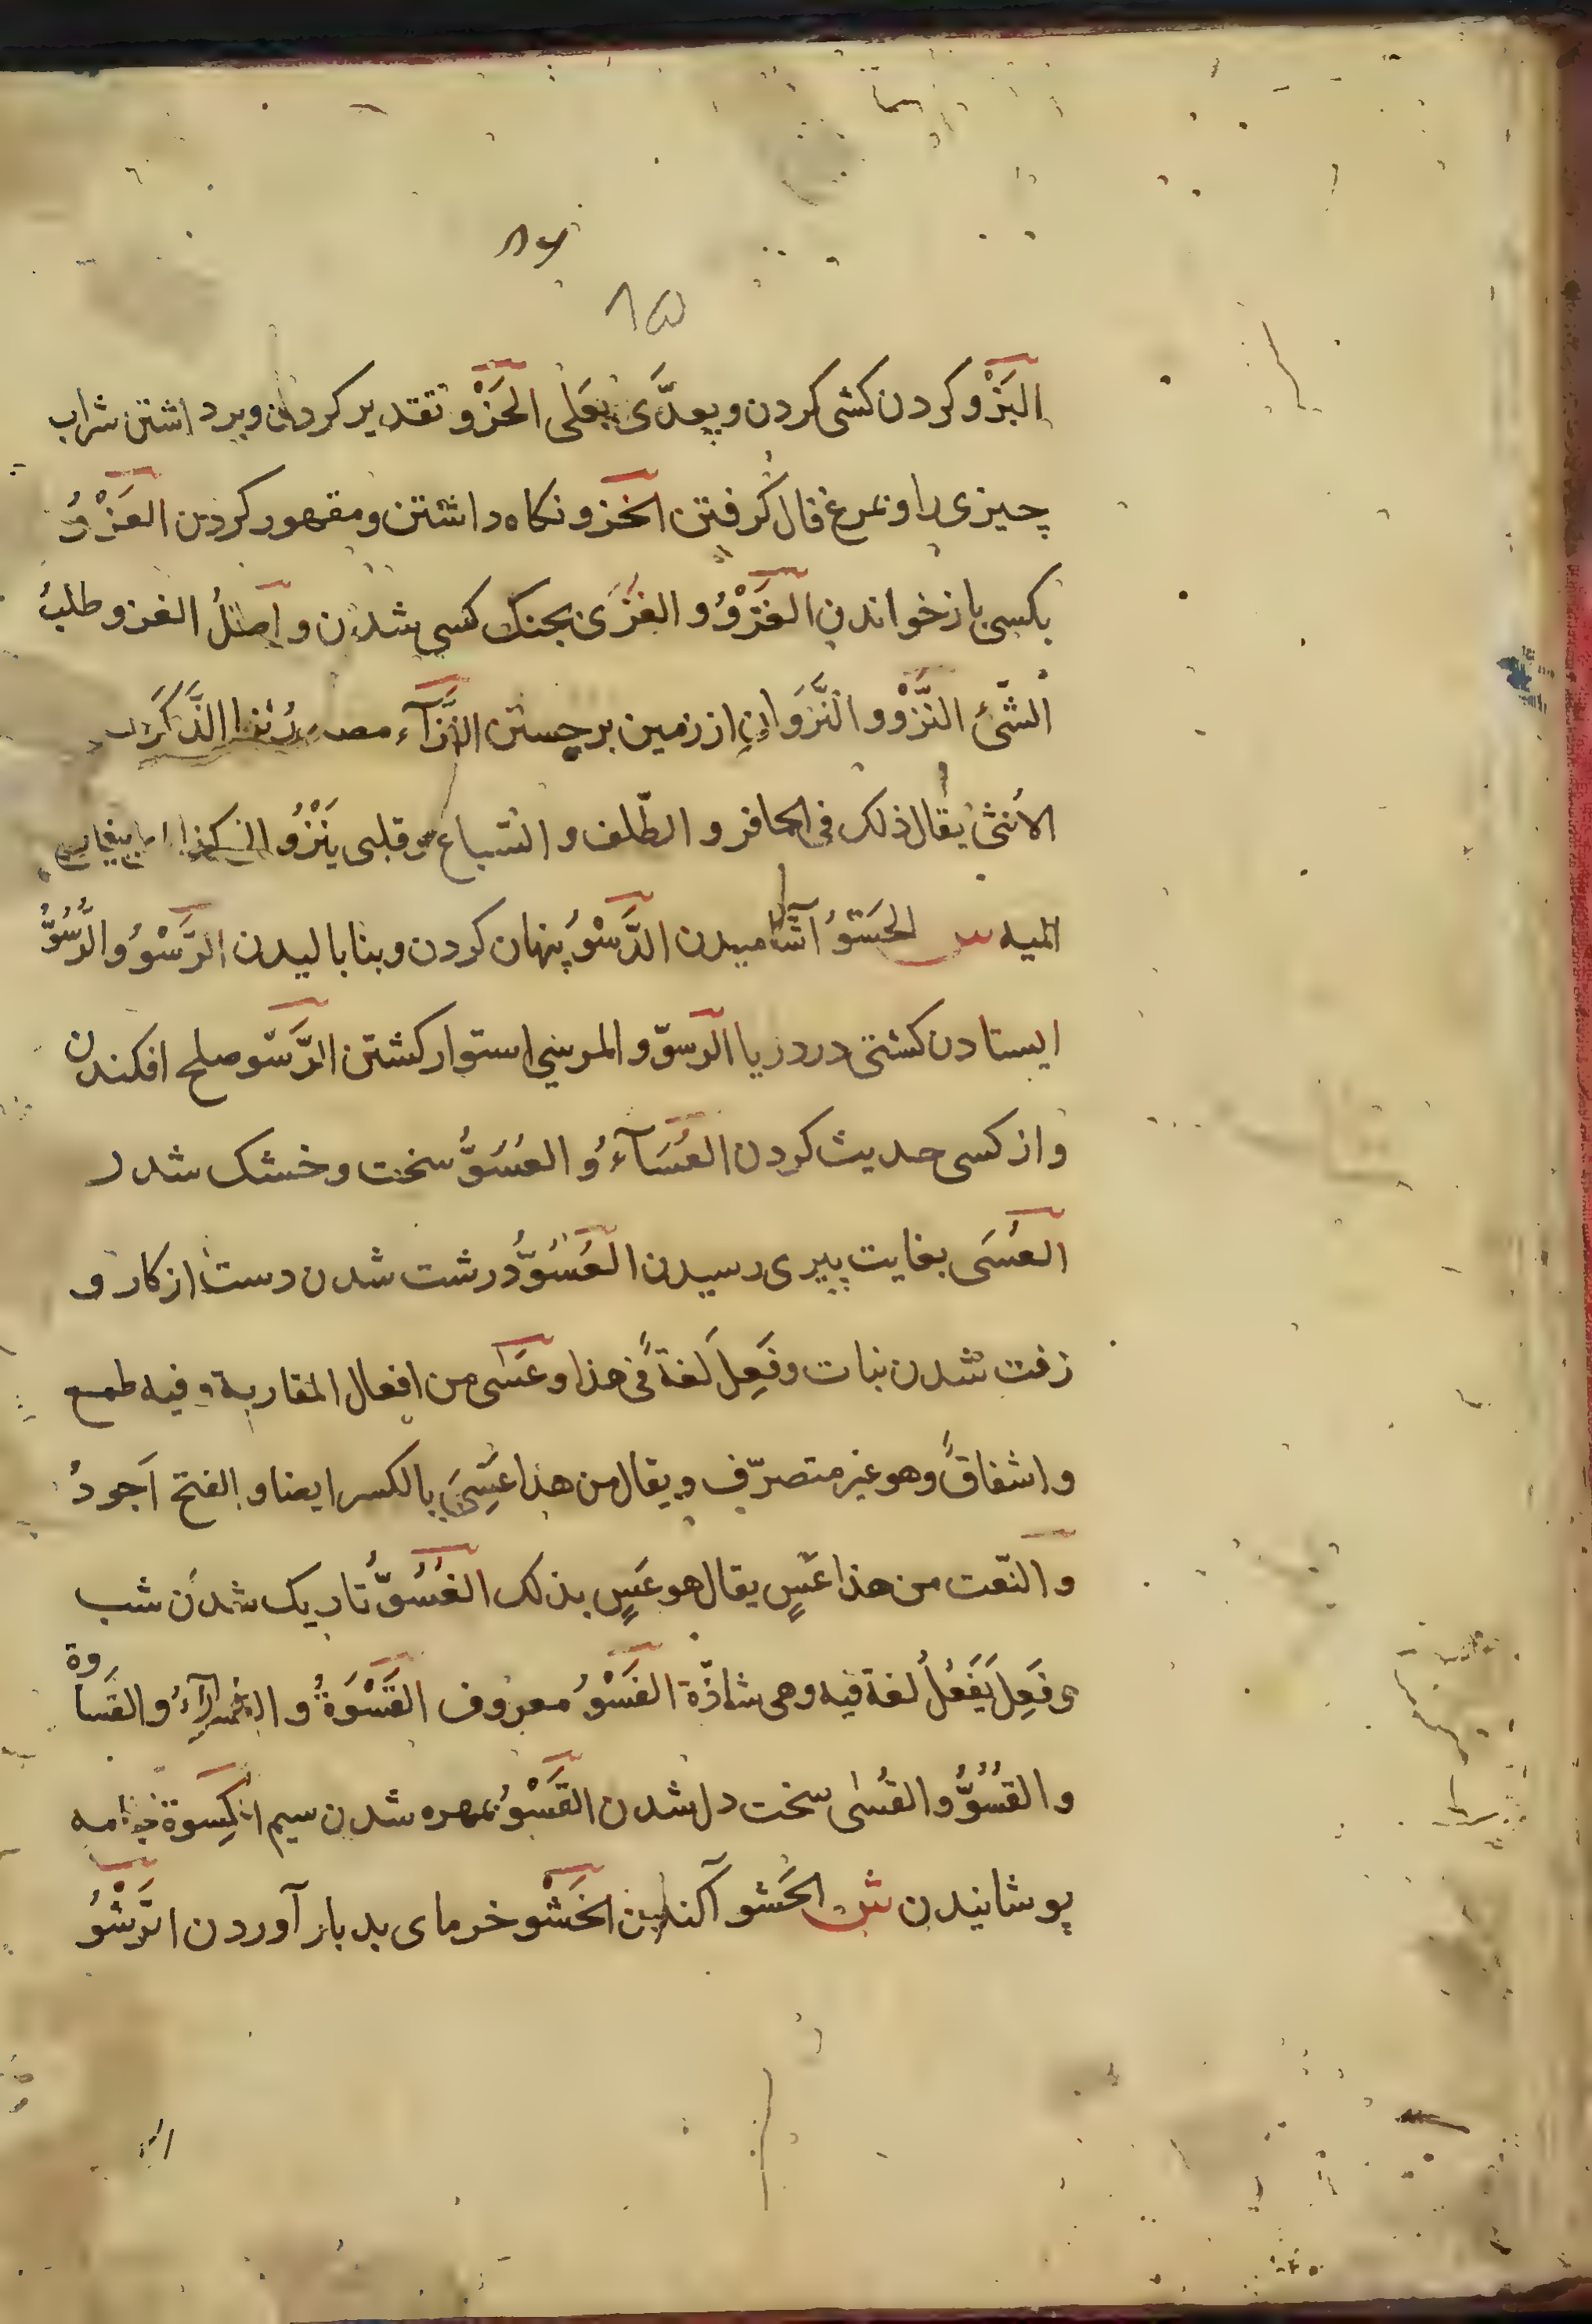 ٨٦
٨۵
البَزْو کردن کشی کردن ویعدّی بعَلی الحَزْو تقدیر کردن وبرداشتن شراب
چیزی را ونمرغ فال کرفتن الخزو نکاه داشتن ومقهور کردن العَزْوُ
بکسی باز خواندن الغَزْوُ و الغَزَی بجنک کسی شدن و اصلُ الغزو طلبُ
الشّئ النَّزْو و النَّزَوانِ از زمین برجستن النَّزآء مصدر الذَّکَر
الاُنثیٰ یُقال ذلک فی الحافر و الظّلف و السّباع وقلبی یَنْزُو الی کذا
الیه س الحَسْوُ آشامیدن الدَّسْوُ پنهان کردن وبنا بالیدن الرَّسْوُ والرُّسُوُّ
ایستادن کشتی در دریا الرسوّ و المرسی استوار کشتن الرَّسْو صلح افکندن
واز کسی حدیث کردن العُسَآءُ و العُسُوُّ سخت وخشک شدن
العُسَی بغایت پیری رسیدن العُسُوُّ درشت شدن دست از کار و
زفت شدن نبات وفَعِلَ لغةً فی هذا وعَسَی من افعال المقاربة وفیه طمع
واشفاقٌ وهو غیر متصرّف ویقال من هذا عَسِیَ بالکسر ایضا و الفتح اَجودُ
و النّعت من هذا عَسٍ یقال هو عَسٍ بذلک الغُسُوُّ تاریک شدن شب
وفَعِلَ یَفْعَلُ لغة فیه وهی شاذّة الفَسْوُ معروف القَسْوَةُ و القسآءُ والقَساوة
و القُسُوُّ و القُسٰی سخت دل شدن القَسْوُ نبهره شدن سیم الکِسوة جامه
پوشانیدن ش الحَشو آکندن الخَشْو خرمای بد بار آوردن الرَّشْوُ